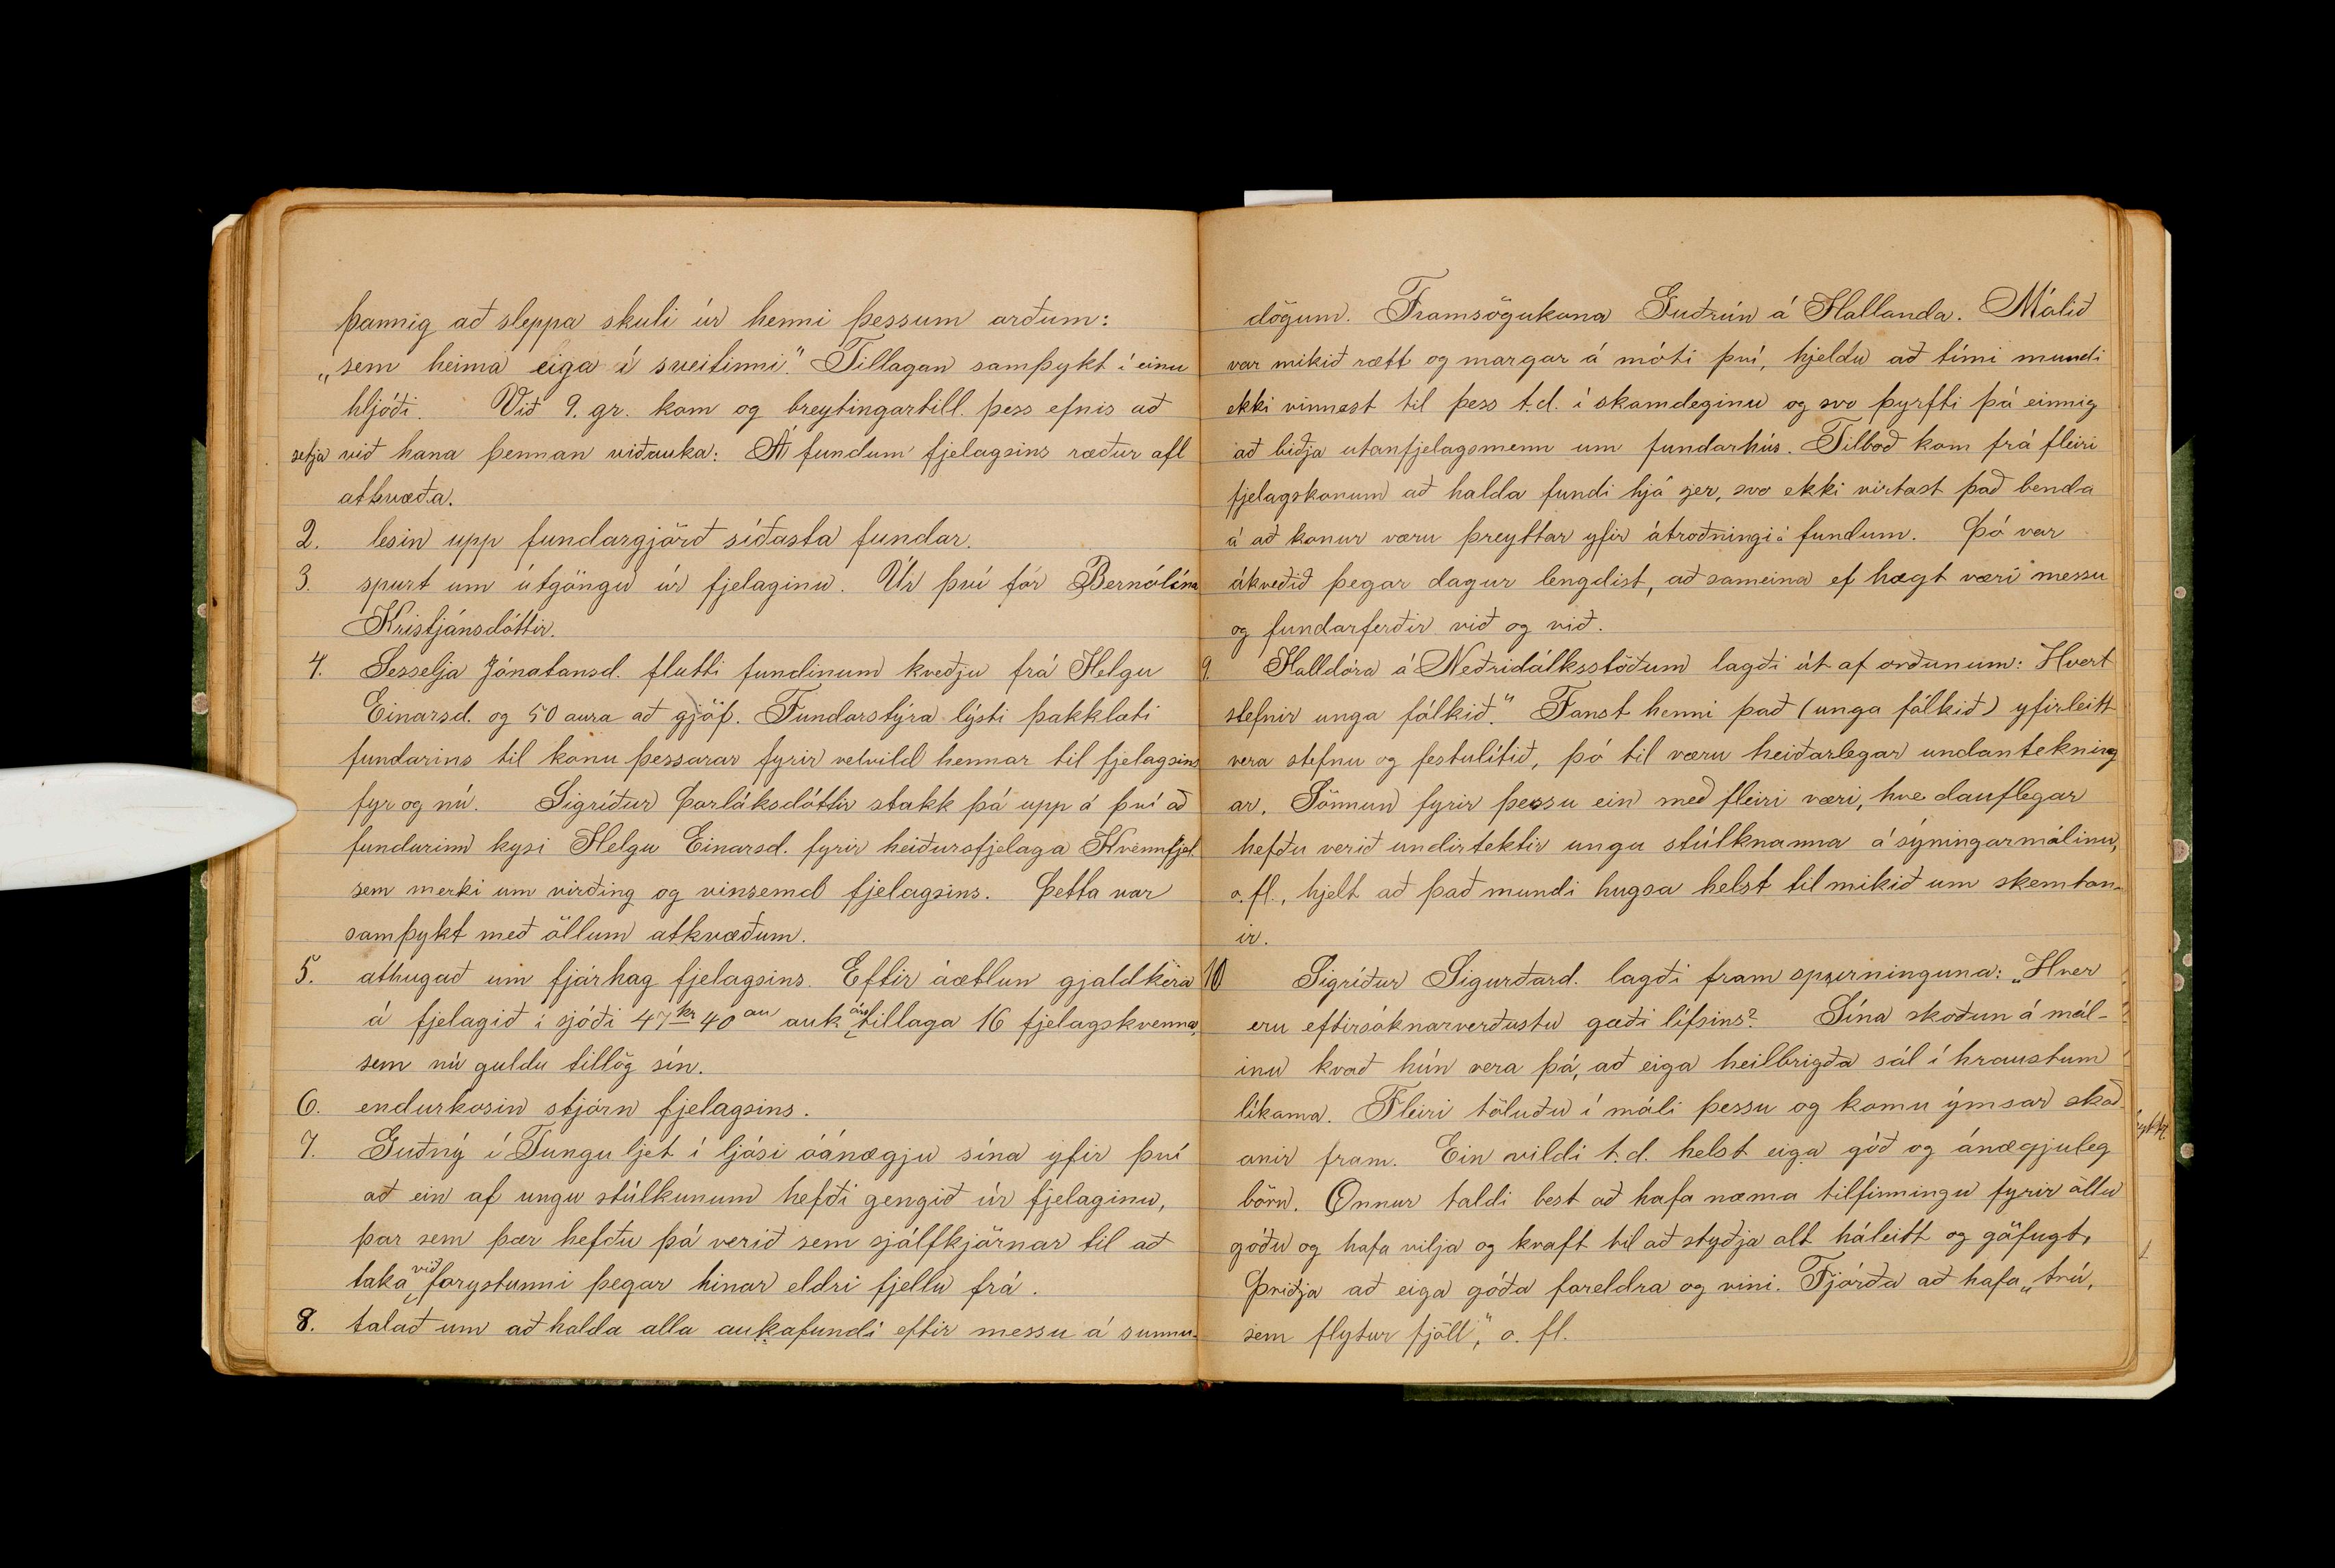 þannig að sleppa skuli úr henni þessum orðum:
„sem heima eiga í sveitinni." Tillagan samþykt í einu
hljóði. Við 9. gr. kom og breytingartill. þess efnis að
setja við hana þennan viðauka: Á fundum fjelagsins ræður afl
atkvæða.
2. lesin upp fundargjörð síðasta fundar.
3. spurt um útgöngu úr fjelaginu. Úr því fór Bernólína
Kristjánsdóttir.
4. Sesselja Jónatansd. flutti fundinum kveðju frá Helgu
Einarsd. og 50 aura að gjöf. Fundarstýra lýsti þakklæti
fundarins til konu þessarar fyrir velvild hennar til fjelagsins
fyr og nú. Sigríður Þorláksdóttir stakk þá upp á því að
fundurinn kysi Helgu Einarsd. fyrir heiðursfjelaga Kvennfjel.
sem merki um virðing og vinsemd fjelagsins. Þetta var
samþykt með öllum atkvæðum.
5. athugað um fjárhag fjelagsins. Eftir áætlun gjaldkera
á fjelagið í sjóði 47 kr 40 au auk árstillaga 16 fjelagskvenna,
sem nú guldu tillög sín.
6. endurkosin stjórn fjelagsins.
7. Guðný í Tungu ljet í ljósi óánægju sína yfir því
að ein af ungu stúlkunum hefði gengið úr fjelaginu,
þar sem þær hefðu þá verið sem sjálfkjörnar til að
taka við forystunni þegar hinar eldri fjellu frá.
8. talað um að halda alla aukafundi eftir messu á sunnu-
dögum. Framsögukona Guðrún á Hallanda. Málið
var mikið rætt og margar á móti því, hjeldu að tími mundi
ekki vinnast til þess t.d. í skamdeginu og svo þyrfti þá einnig
að biðja utanfjelagsmenn um fundarhús. Tilboð kom frá fleiri
fjelagskonum að halda fundi hjá sjer, svo ekki virtast það benda
á að konur væru þreyttar yfir átroðningi á fundum. Þó var
ákveðið þegar dagur lengdist, að sameina ef hægt væri messu
og fundarferðir við og við.
9. Halldóra á Neðridálksstöðum lagði út af orðunum: Hvert
stefnir unga fólkið." Fanst henni það (unga fólkið) yfirleitt
vera stefnu og festulítið, þó til væru heiðarlegar undantekning
ar. Sönnun fyrir þessu ein með fleiri væri, hve dauflegar
hefðu verið undirtektir ungu stúlknanna á sýningarmálinu,
o.fl., hjelt að það mundi hugsa helst til mikið um skemtan-
ir.
10 Sigríður Sigurðard. lagði fram spurninguna: „Hver
eru eftirsóknarverðustu gæði lífsins? Sína skoðun á mál-
inu kvað hún vera þá, að eiga heilbrigða sál í hraustum
líkama. Fleiri töluðu í máli þessu og komu ýmsar skoð-
anir fram. Ein vildi t.d. helst eiga góð og ánægjuleg
börn. Önnur taldi best að hafa næma tilfinningu fyrir öllu
góðu og hafa vilja og kraft til að styðja alt háleitt og göfugt,
Þriðja að eiga góða foreldra og vini. Fjórða að hafa „trú,
sem flytur fjöll," o. fl.